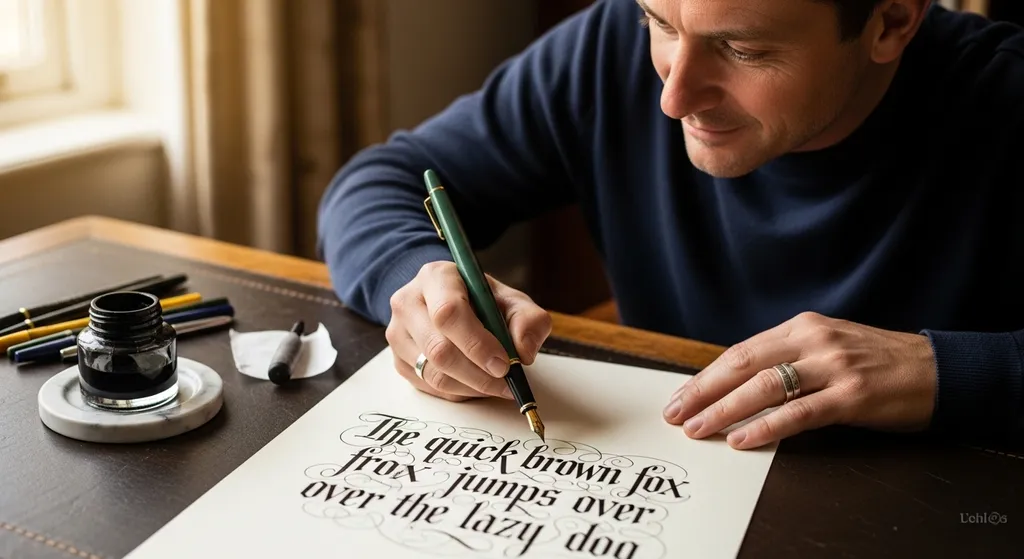 The quick brown fox
frox jumps over
over the lazy dog